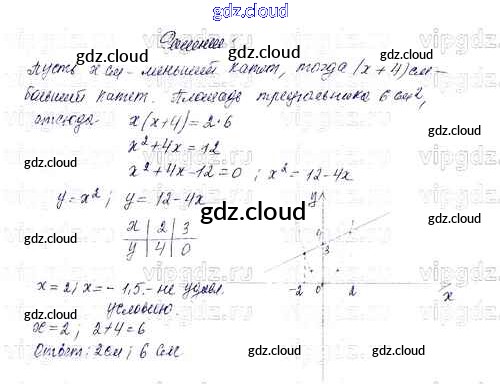 gdz.cloud
Решение:
Пусть x см - меньший катет, тогда (x + 4) см -
больший катет. Площадь треугольника 6 см²,
отсюда x(x+4) = 2·6
x² + 4x = 12
x² + 4x - 12 = 0 ; x² = 12 - 4x
y = x² ; y = 12 - 4x
x 2 3
y 4 0
x = 2; x = - 1,5 - не удовл.
условию.
x = 2 ; 2+4 = 6
Ответ: 2 см ; 6 см
y
4
3
-2 0 2
x
gdz.cloud
gdz.cloud
gdz.cloud
gdz.cloud
gdz.cloud
gdz.cloud
gdz.cloud
gdz.cloud
gdz.cloud
gdz.cloud